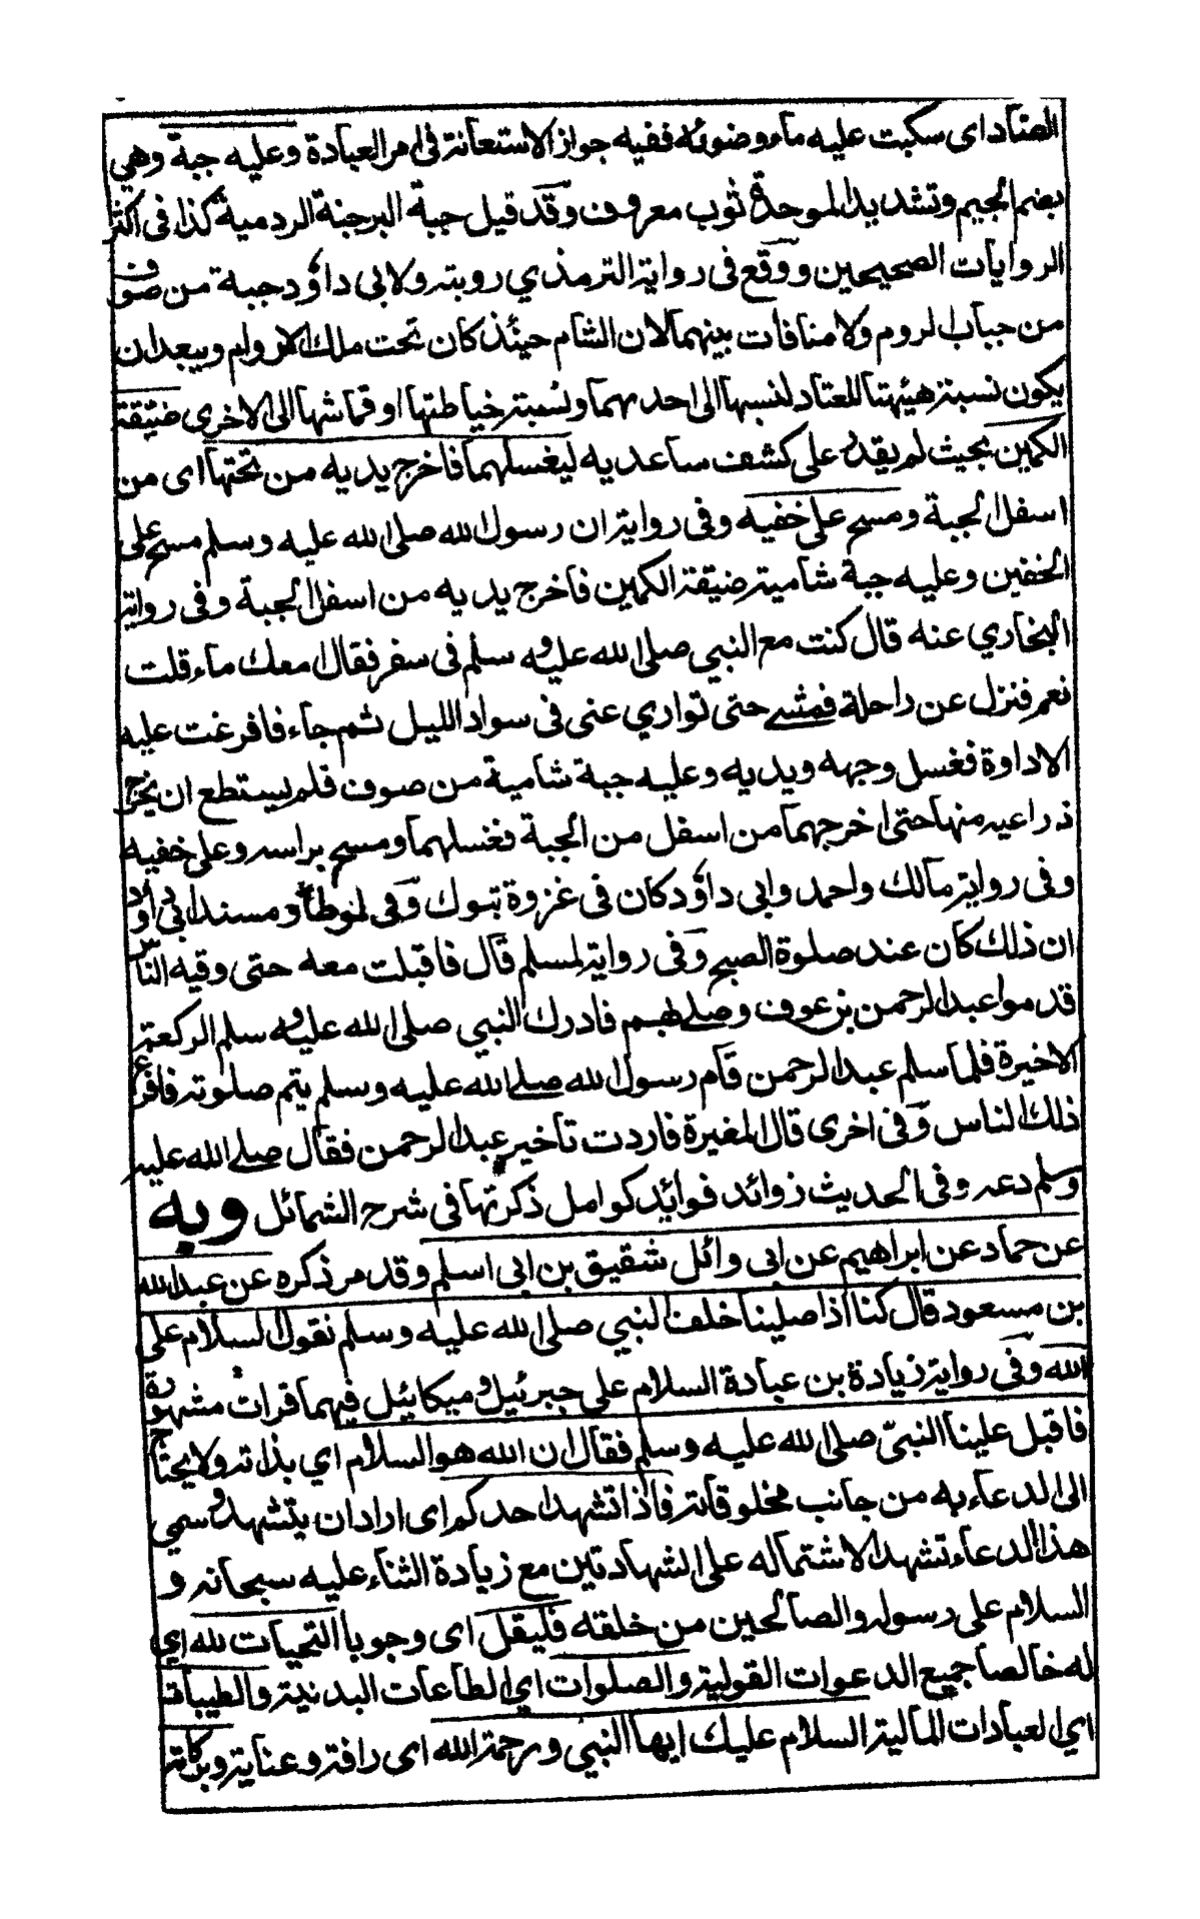 الصاد اى سكبت عليه ماء وضوئه ففيه جواز الاستعانة فى امر العبادة وعليه جبة وهي
بضم الجيم وتشديد الموحدة ثوب معروف وقد قيل جبة البرجنة الردمية كذا فى اكثر
الروايات الصحيحين ووقع فى رواية الترمذي روبته ولابى داؤد جبة من صوف
من جباب الروم ولا منافات بينهما لان الشام حينئذ كان تحت ملك الاروام ويبعد ان
يكون نسبة هيئتها المعتاد لنسبها الى احدهما ونسبة خياطتها او قماشها الى الاخرى ضيقة
الكمين بحيث لم يقدر على كشف ساعديه ليغسلهما فاخرج يديه من تحتها اى من
اسفل الجبة ومسح على خفيه وفى رواية ان رسول الله صلى الله عليه وسلم مسح على
الخفين وعليه جبة شامية ضيقة الكمين فاخرج يديه من اسفل الجبة وفى رواية
البخاري عنه قال كنت مع النبي صلى الله عليه وسلم فى سفر فقال امعك ماء قلت
نعم فنزل عن راحلة فمشے حتى توارى عنى فى سواد الليل ثم جاء فافرغت عليه
الاداوة فغسل وجهه ويديه وعليه جبة شامية من صوف فلم يستطع ان يخرج
ذراعيه منها حتى اخرجهما من اسفل من الجبة فغسلهما ومسح براسه وعلى خفيه
وفى رواية مالك واحمد وابى داؤد كان فى غزوة تبوك وفى لموطأ ومسند ابى داؤد
ان ذلك كان عند صلوة الصبح وفى رواية لمسلم قال فاقبلت معه حتى وقيه الناس
قدموا عبد الرحمن بن عوف وصلے بهم فادرك النبي صلى الله عليه وسلم الركعة
الاخيرة فلما سلم عبد الرحمن قام رسول الله صلے الله عليه وسلم يتم صلوته فافزع
ذلك الناس وفى اخرى قال المغيرة فاردت تاخير عبد الرحمن فقال صلے الله عليه
وسلم دعه وفى الحديث زوائد فوائد كوامل ذكرتها فى شرح الشمائل وبه
عن حماد عن ابراهيم عن ابى وائل شقيق بن ابى اسلم وقد مر ذكره عن عبد الله
بن مسعود قال كنا اذا صلينا خلف النبي صلى الله عليه وسلم نقول السلام على
الله وفى رواية زيادة بن عبادة السلام على جبرئيل وميكائيل فيهما قرات مشهورة
فاقبل علينا النبى صلى الله عليه وسلم فقال ان الله هو السلام اي بذاته ولا يحتاج
الى الدعاء به من جانب مخلوقاته فاذا تشهد احدكم اى اراد ان يتشهد وسمي
هذا الدعاء تشهد الاشتماله على الشهادتين مع زيادة الثناء عليه سبحانه و
السلام على رسوله والصالحين من خلقه فليقل اى وجوبا التحيات لله اي
له خالصا جميع الدعوات القولية والصلوات اي الطاعات البدنية والطيبات
اي العبادات المالية السلام عليك ايها النبي ورحمة الله اى رافة وعناية وبركاته